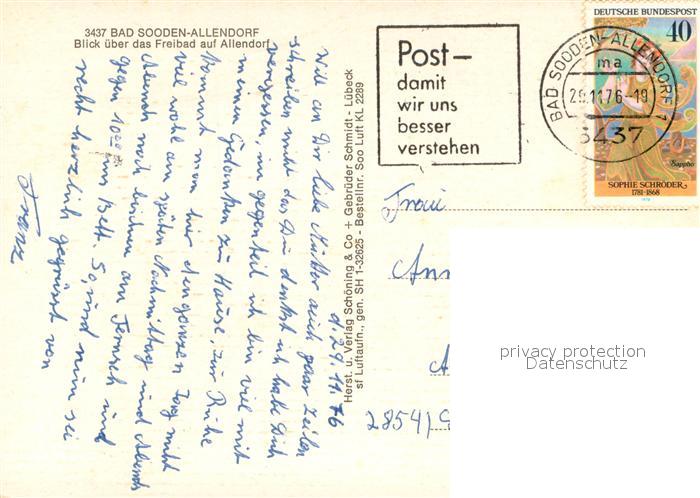 3437 BAD SOODEN-ALLENDORF
Blick über das Freibad auf Allendorf
d. 29.11.76
Will an Dir liebe Mutter auch paar Zeilen
schreiben nicht das Du denkst ich habe Dich
vergessen, im gegenteil ich bin viel mit
meinen Gedanken zu Hause, zur Ruhe
kommt man hier den ganzen Tag nicht
viel wohl am späten Nachmittag und Abends
Abends noch bischen am Fernseh und
gegen 10 ins Bett. So, und nun sei
recht herzlich gegrüsst von
Franz
Herst. u. Verlag Schöning & Co + Gebrüder Schmidt - Lübeck
sf Luftaufn., gen. SH 1-32625 - Bestellnr. Soo Luft KL 2289
Post-
damit
wir uns
besser
verstehen
BAD SOODEN-ALLENDORF 1
ma
29.11.76-19
3437
DEUTSCHE BUNDESPOST
40
Sappho
SOPHIE SCHRÖDER
1781-1868
1976
Frau
Ann
A
2854)
privacy protection
Datenschutz